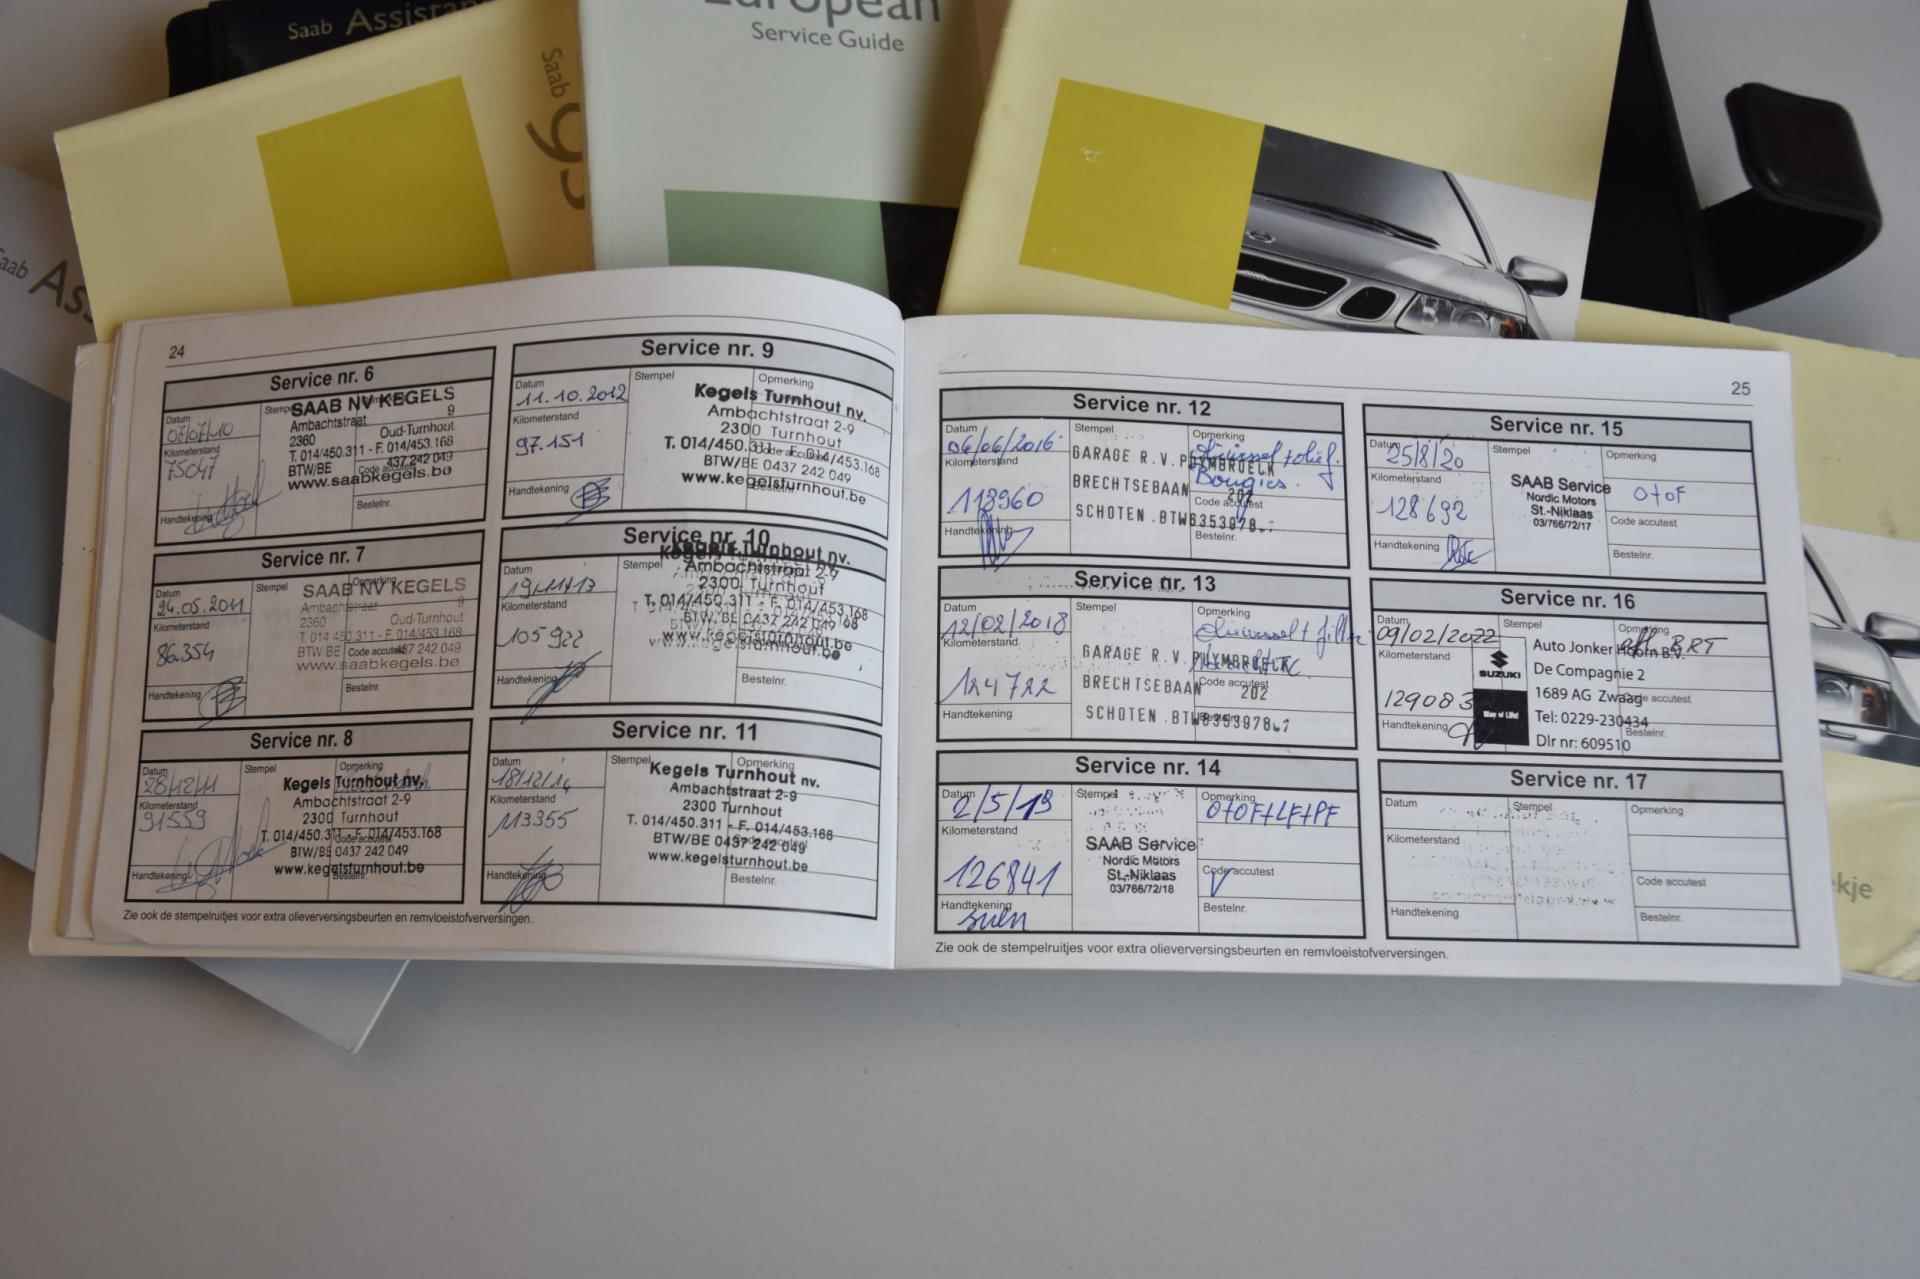 Saab Assistan
European
Service Guide
Saab
95
Saab
Ass
kje
24
Service nr. 6
Datum
07/07/10
Stempel
SAAB NV KEGELS
Ambachtstraat 9
2360 Oud-Turnhout
T. 014/450.311 - F. 014/453.168
BTW/BE 437 242 049
www.saabkegels.be
Kilometerstand
75047
Handtekening
Code accutest
Bestelnr.
Service nr. 7
Datum
24.05.2011
Stempel
Opmerking
SAAB NV KEGELS
Ambachtstraat 9
2360 Oud-Turnhout
T. 014 450.311 - F. 014/453.168
BTW BE 437 242 049
www.saabkegels.be
Kilometerstand
86354
Handtekening
Code accutest
Bestelnr
Service nr. 8
Datum
28/12/11
Stempel
Opmerking
Kegels Turnhout nv.
Ambachtstraat 2-9
2300 Turnhout
T. 014/450.311 - F. 014/453.168
BTW/BE 0437 242 049
www.kegelsturnhout.be
Kilometerstand
91559
Handtekening
Bestelnr.
Zie ook de stempelruitjes voor extra olieverversingsbeurten en remvloeistofverversingen.
Service nr. 9
Datum
11.10.2012
Stempel
Opmerking
Kegels Turnhout nv.
Ambachtstraat 2-9
2300 Turnhout
T. 014/450.311 - F. 014/453.168
BTW/BE 0437 242 049
www.kegelsturnhout.be
Kilometerstand
97.151
Handtekening
Code accutest
Bestelnr.
Service nr. 10
Datum
19/11/13
Stempel
Kegels Turnhout nv.
Ambachtstraat 2-9
2300 Turnhout
T. 014/450.311 - F. 014/453.168
BTW/BE 0437 242 049
www.kegelsturnhout.be
Kilometerstand
105922
Handtekening
Bestelnr.
Service nr. 11
Datum
18/12/14
Stempel
Opmerking
Kegels Turnhout nv.
Ambachtstraat 2-9
2300 Turnhout
T. 014/450.311 - F. 014/453.168
BTW/BE 0437 242 049
www.kegelsturnhout.be
Kilometerstand
113355
Handtekening
Bestelnr.
25
Service nr. 12
Datum
06/06/2016
Stempel
Opmerking
Bougies.
GARAGE R.V. PUYMBROECK
BRECHTSEBAAN 202
SCHOTEN .BTW6353078.-
Kilometerstand
118960
Handtekening
Code accutest
Bestelnr.
Service nr. 13
Datum
12/02/2018
Stempel
Opmerking
GARAGE R.V. PUYMBROECK
BRECHTSEBAAN 202
SCHOTEN .BTW
Kilometerstand
124722
Handtekening
Code accutest
Service nr. 14
Datum
2/5/19
Stempel
Opmerking
O+OF+LF+PF
SAAB Service
Nordic Motors
St.-Niklaas
03/766/72/18
Kilometerstand
126841
Handtekening
Code accutest
Bestelnr.
Zie ook de stempelruitjes voor extra olieverversingsbeurten en remvloeistofverversingen.
Service nr. 15
Datum
25/8/20
Stempel
Opmerking
O+OF
SAAB Service
Nordic Motors
St.-Niklaas
03/766/72/17
Kilometerstand
128692
Handtekening
Code accutest
Bestelnr.
Service nr. 16
Datum
09/02/2022
Stempel
Opmerking
BRT
SUZUKI
Way of Life!
Auto Jonker Hoorn B.V.
De Compagnie 2
1689 AG Zwaag
Tel: 0229-230434
Dlr nr: 609510
Kilometerstand
129083
Handtekening
Code accutest
Bestelnr.
Service nr. 17
Datum
Stempel
Opmerking
Kilometerstand
Code accutest
Handtekening
Bestelnr.